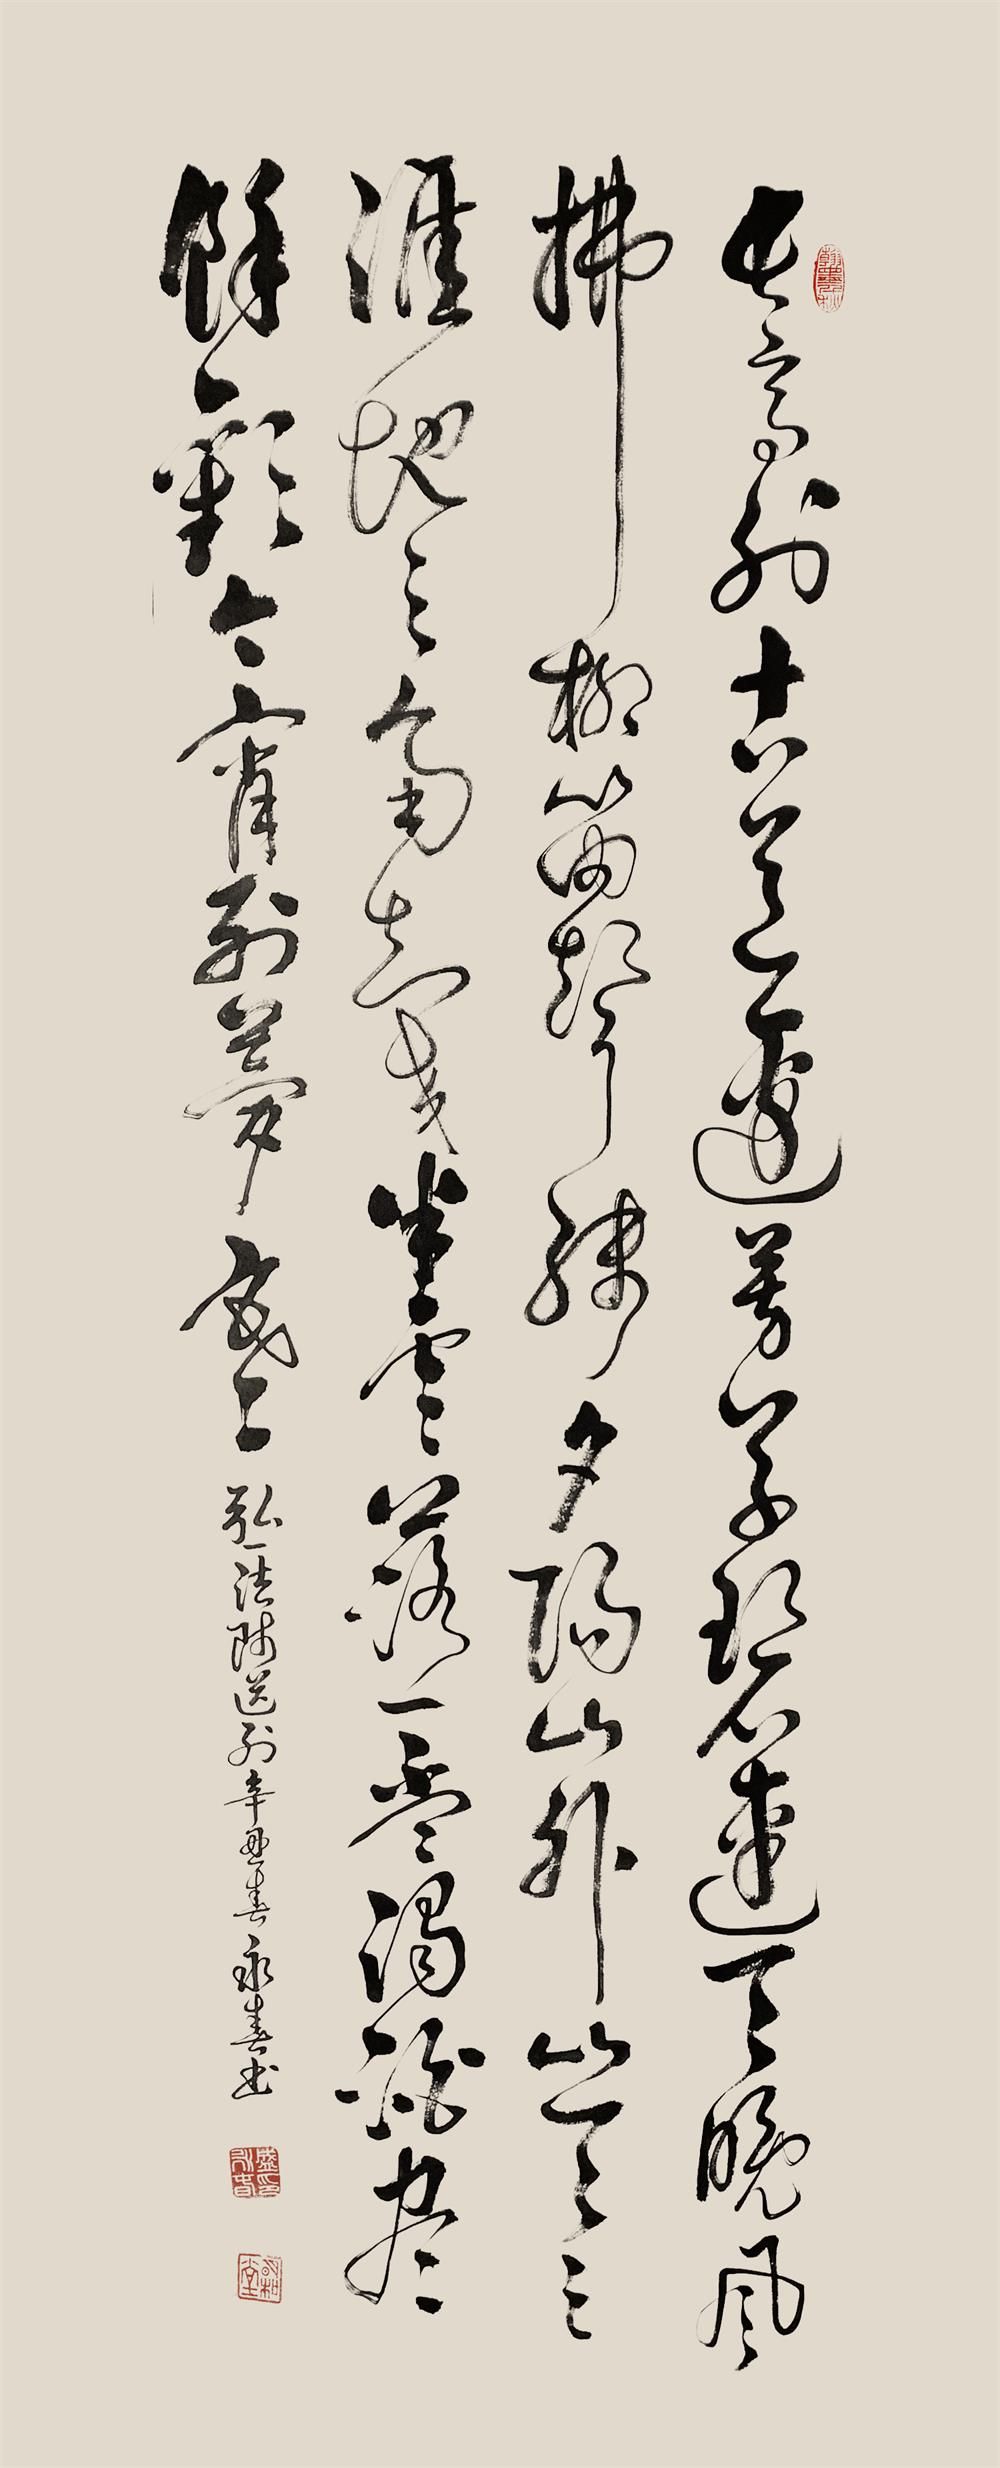 長亭外古道邊芳草碧連天晚風
拂柳笛聲殘夕陽山外山天之
涯地之角知交半零落一盃濁酒盡
餘歡今宵別夢寒
弘一法師送別辛丑春永春書